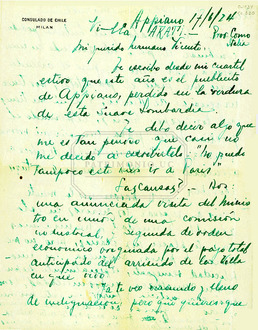 CONSULADO DE CHILE
MILAN
Appiano 17/6/24
Villa "ARATI".- Prov. Como
Italia
Mi querido hermano Vicente.
Te escribo desde mi cuartel
estivo que este año es el pueblecito
de Appiano, perdido en la verdura
de esta suave Lombardia.
Te debo decir algo que
me es tan penoso que casi no
me decido a escribirtelo: "No puedo
tampoco este mes ir a Paris"
Las causas? - Dos:
una anunciada visita del Minis
tro en union de una comisión
y segunda de orden
economico originada por el pago total
anticipado del arriendo de la Villa
en que vivo
Ya te veo rabiando y lleno
de indignacion pero que quieres que